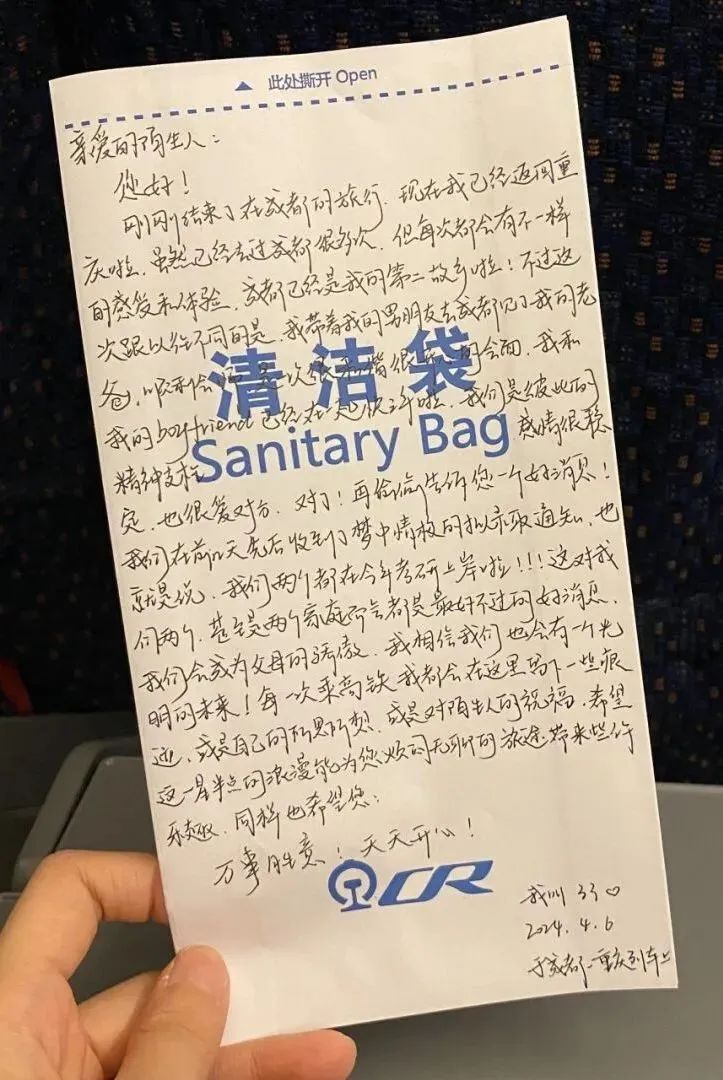 此处撕开 Open
亲爱的陌生人：
您好！
刚刚结束了在成都的旅行．现在我已经返回重
庆啦．虽然已经去过成都很多次．但每次都会有不一样
的感受和体验．成都已经是我的第二故乡啦！不过这
次跟以往不同的是．我带着我的男朋友去成都见了我的老
爸，顺利会面．是一次很 的会面．我和
清洁袋
我的boyfriend已经在一起快三年啦．我们是彼此的
精神支柱 感情很稳
Sanitary Bag
定．也很爱对方．对了！再给您告诉您一个好消息！
我们在前几天先后收到了梦中情校的拟录取通知．也
就是说．我们两个都在今年考研上岸啦！！！这对我
们两个．甚至是两个家庭而言都是最好不过的好消息．
我们会成为父母的骄傲．我相信我们也会有一个光
明的未来！每一次乘高铁我都会在这里留下一些痕
迹．或是自己的所思所想．或是对陌生人的祝福．希望
这一星半点的浪漫能为您烦闷无聊的旅途带来些许
乐趣．同样也希望您：
万事胜意！天天开心！
CR
我叫
2024.4.6
于成都-重庆列车上